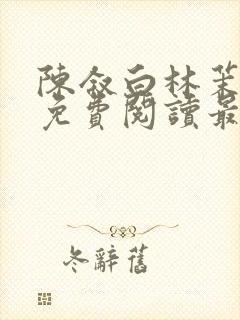 陳叙白林茉
免費閱讀最
冬辭舊